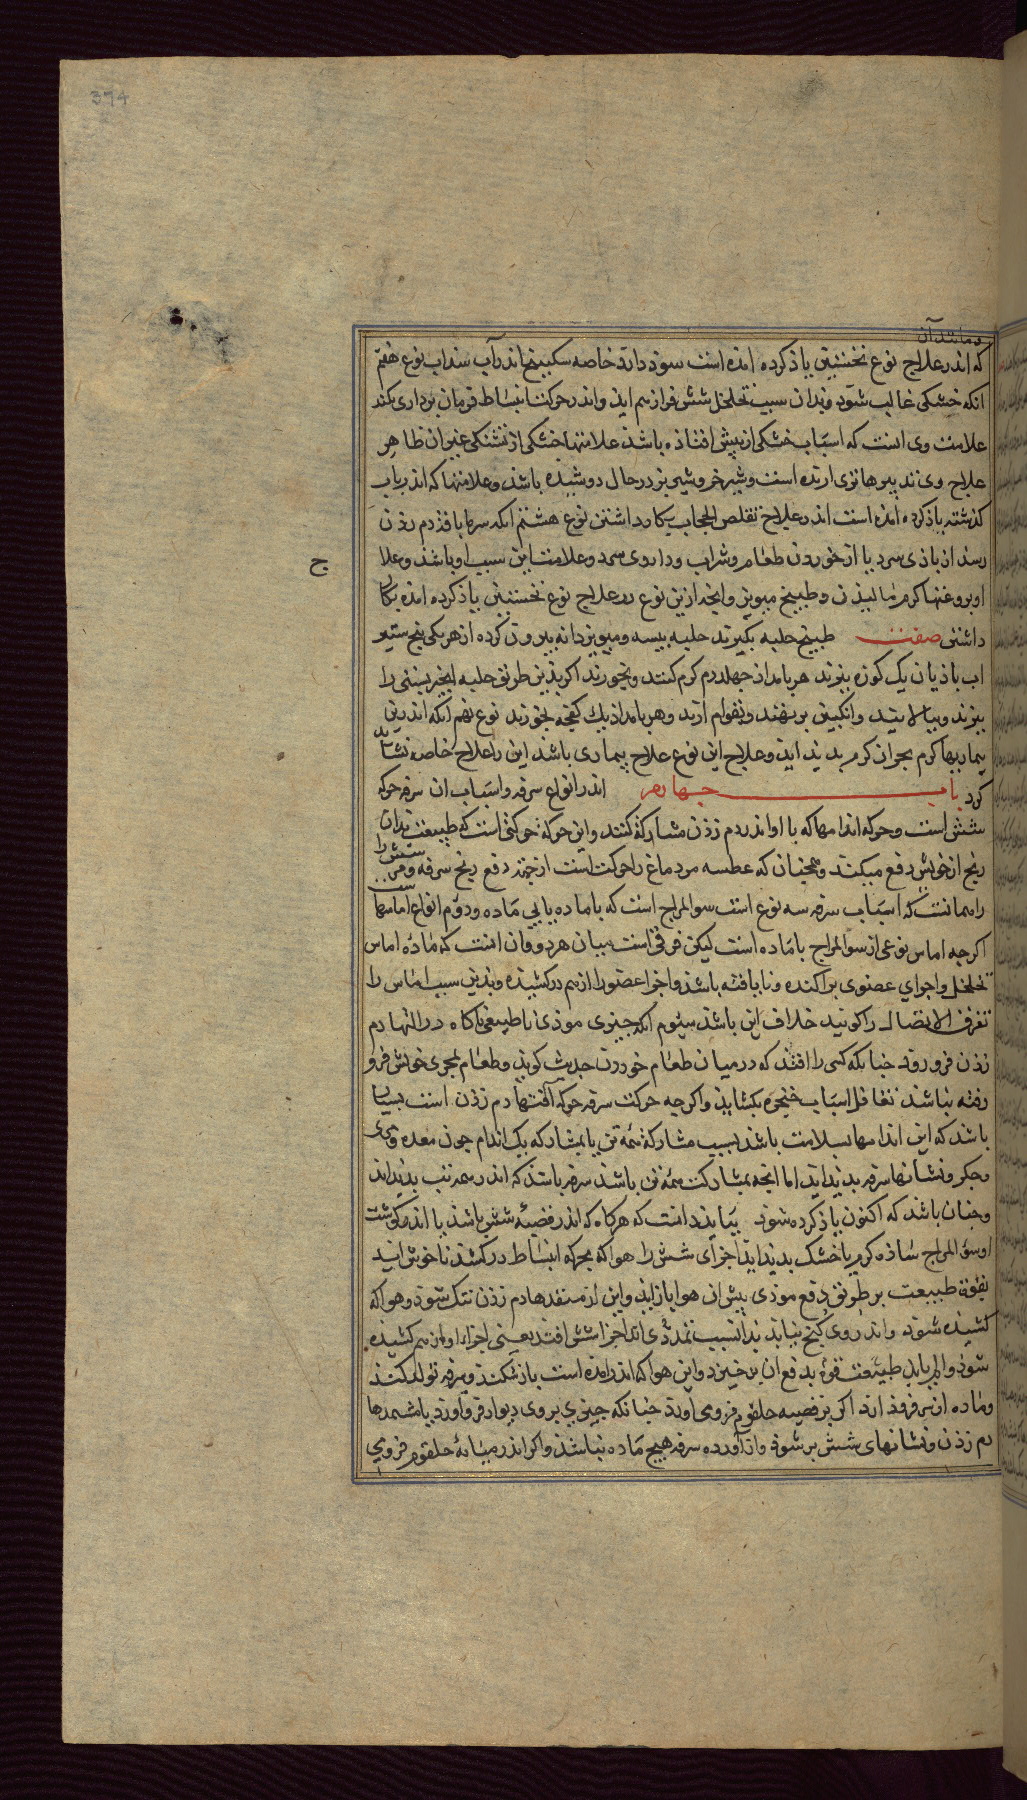 394
و مانند آن
که اندر علاج نوع نخستین یاذ کرده امذه است سوذ دارد خاصه سکبینج اندر آب سنداب نوع هفتم
انکه خشکی غالب شود و بذان سبب تخلخل شش فرازهم ایذ و اندر حرکت انبساط فرمان برداری نکند
علامت وی است که اسباب خشکی از پیش افتاذه باشذ و علامتها خشکی از تشنکی غیر ان ظاهر
علاج وی تدبیرها تری ارنده است و شیر خر و شیر بز در حال دوشیذه باشذ و علامتها که اندر باب
کذشته یاذ کرده امذه است اندر علاج تقلص الحجاب بکار داشتن نوع هشتم انکه سرما بافزدم زذن
رسذ از باذی سرد یا از خوردن طعام و شراب و داروی سرد و علامت این سبب او باشذ و علا
او بروغنها کرم مالیذن و طبیخ میویز و انجه ازین نوع در علاج نوع نخستین یاذ کرده امذه بکار
داشتن صفت طبیخ حلبه بکیرند حلبه بیسه و میویز دانه بیرون کرده از هر یکی پنج ستیر
اب باذیان یک کوزه بپزند هر بامداذ چهل درم کرم کنند و بخورند اکر بذین طریق حلبه انجیر بستی را
بپزند و بپالایند و انکبین برنهند و بقوام ارند و هر بامداذ یک کفچه بخورند نوع نهم انکه اندرین
بیماریها کرم بحران کرم بدید ایذ و علاج این نوع علاج بیماری باشذ این را علاج خاص نشاید
کرد باب چهارم اندر انواع سرفه و اسباب ان سرفه حرکه
شش است و حرکه اندامها که با او اندر دم زذن مشارکه کنند و این حرکه حرکتی است که طبیعت بذان
رنج از خویش دفع میکند و همچنان که عطسه مر دماغ را حرکت است از جهة دفع رنج سرفه و مر شش را
را همانست که اسباب سرفه سه نوع است سوالمزاج است که با ماده یا بی ماده و دوم انواع اماسهاست
اکرچه اماس نوعی از سوالمزاج با ماده است لیکن فرقی است میان هردو و ان انست که ماده اماس
تخلخل و اجزای عضوی پراکنده و نایافته باشذ و اجزا عضو را از هم درکشیذه و بذین سبب اماس را
تفرق الاتصال را کویند خلاف این باشذ سیوم انکه چیزی موذی ناطبیعی ناکاه در التها دم
زذن فرو روذ چنانکه کسی را افتذ که در میان طعام خوردن حدیث کویذ و طعام بمجری خویش فرو
رفته نباشذ تغافل اسباب خنجره بکشایذ و اکرچه حرکت سرفه حرکه آلتها دم زذن است بسیار
باشذ که این اندامها بسلامت باشذ بسبب مشارکة همه تن یا بمشارکه یک اندام چون معده و مری
و جکر و نشانها سرفه بدید ایذ اما انچه بمشارکت همه تن باشذ سرفه باشذ که اندر همه تب بدید ایذ
و چنان باشذ که اکنون یاذ کرده شوذ ببایذ دانست که هرکاه که اندر قصبه شش باشذ یا اندر کوشت
او سوالمزاج ساذه کرم یا خشک بدید ایذ اجزای شش را هوا که بحرکه انبساط درکشذ ناخوش ایذ
بقوة طبیعت بر طریق دفع موذی پیش ان هوا بازایذ و این از منفذها دم زذن تنک شوذ و هوا که
کشیذه شوذ و اندر وی کنج نیابذ بذان سبب تمددی اندر اجزا شش افتذ یعنی اجزا او از هم کشیذه
شوذ و الم یابذ طبیعت قوة بدفع ان برخیزد و این هوا که اندر امذه است بازشکنذ و سرفه تولد کنذ
و ماده از سر فروذ ارذ اکر بر قصبه حلقوم فرو می آورد چنانکه چیزی بر وی دیوار فرو آورذ یا شمدها
دم زذن و نشانهای شش بر شوذ و از آورده سرفه هیچ ماده نباشذ و اکر اندر میانه حلقوم فرو می
ج